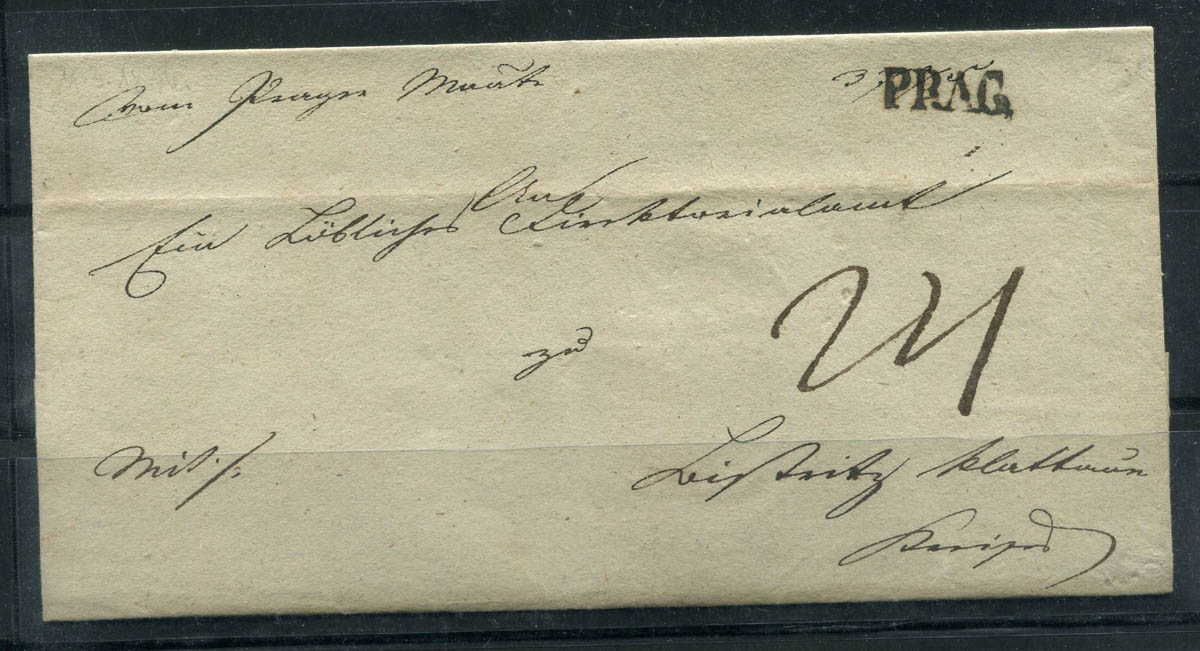 Vom Prager Mauth PRAG.
An
Ein Löbliches Direktorialamt
zu
Bistritz Klattauer
Kreises